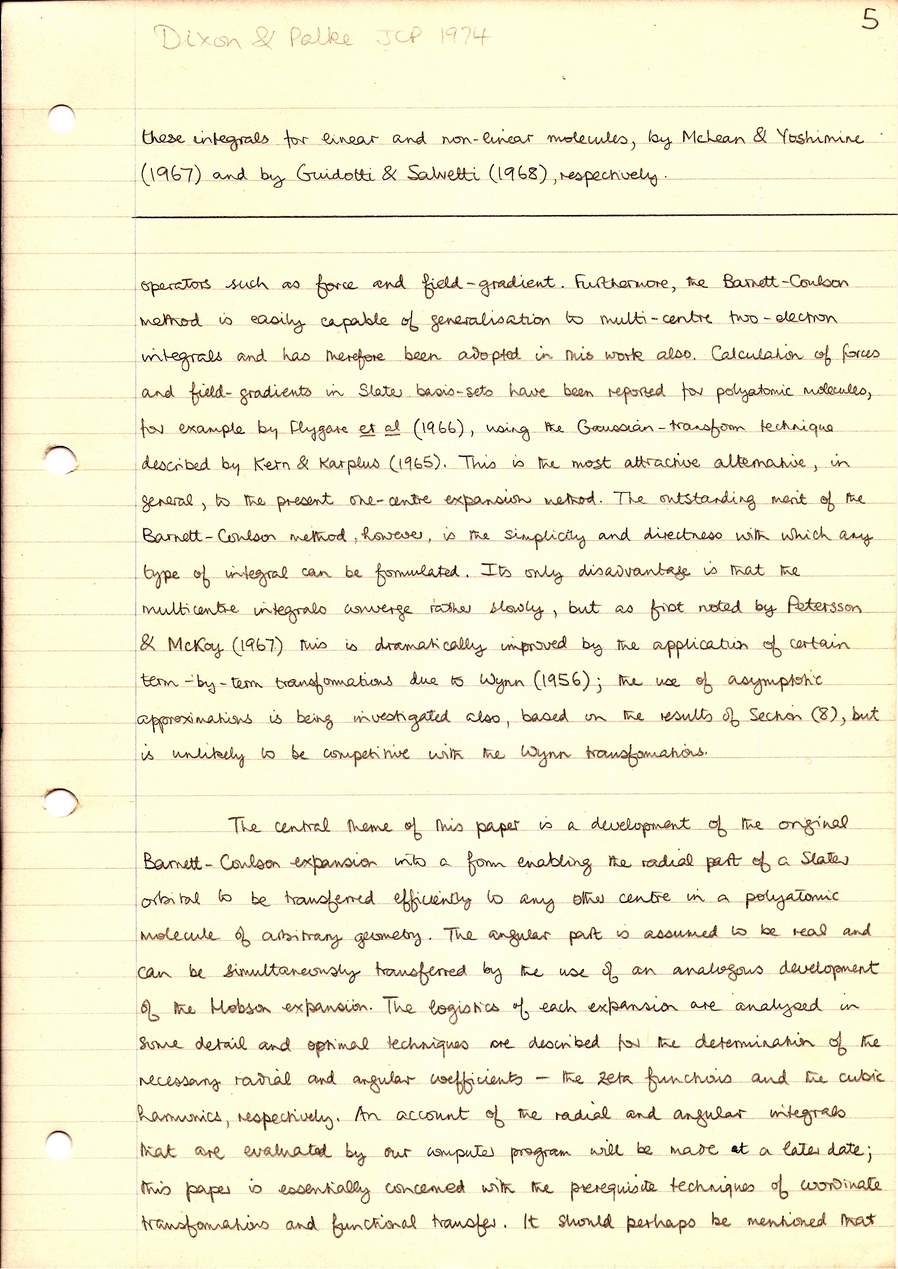 5
Dixon & Palke JCP 1974
these integrals for linear and non-linear molecules, by McLean & Yoshimine
(1967) and by Guidotti & Salvetti (1968), respectively.
operators such as force and field-gradient. Furthermore, the Barnett-Coulson
method is easily capable of generalisation to multi-centre two-electron
integrals and has therefore been adopted in this work also. Calculation of forces
and field-gradients in Slater basis-sets have been reported for polyatomic molecules,
for example by Flygare et al (1966), using the Gaussian-transform technique
described by Kern & Karplus (1965). This is the most attractive alternative, in
general, to the present one-centre expansion method. The outstanding merit of the
Barnett-Coulson method, however, is the simplicity and directness with which any
type of integral can be formulated. Its only disadvantage is that the
multicentre integrals converge rather slowly, but as first noted by Petersson
& McKoy (1967) this is dramatically improved by the application of certain
term-by-term transformations due to Wynn (1956); the use of asymptotic
approximations is being investigated also, based on the results of Section (8), but
is unlikely to be competitive with the Wynn transfomations.
The central theme of this paper is a development of the original
Barnett-Coulson expansion into a form enabling the radial part of a Slater
orbital to be transferred efficiently to any other centre in a polyatomic
molecule of arbitrary geometry. The angular part is assumed to be real and
can be simultaneously transferred by the use of an analogous development
of the Hobson expansion. The logistics of each expansion are analysed in
some detail and optimal techniques are described for the determination of the
necessary radial and angular coefficients - the zeta functions and the cubic
harmonics, respectively. An account of the radial and angular integrals
that are evaluated by our computer program will be made at a later date;
this paper is essentially concerned with the prerequisite techniques of coordinate
transfomations and functional transfer. It should perhaps be mentioned that